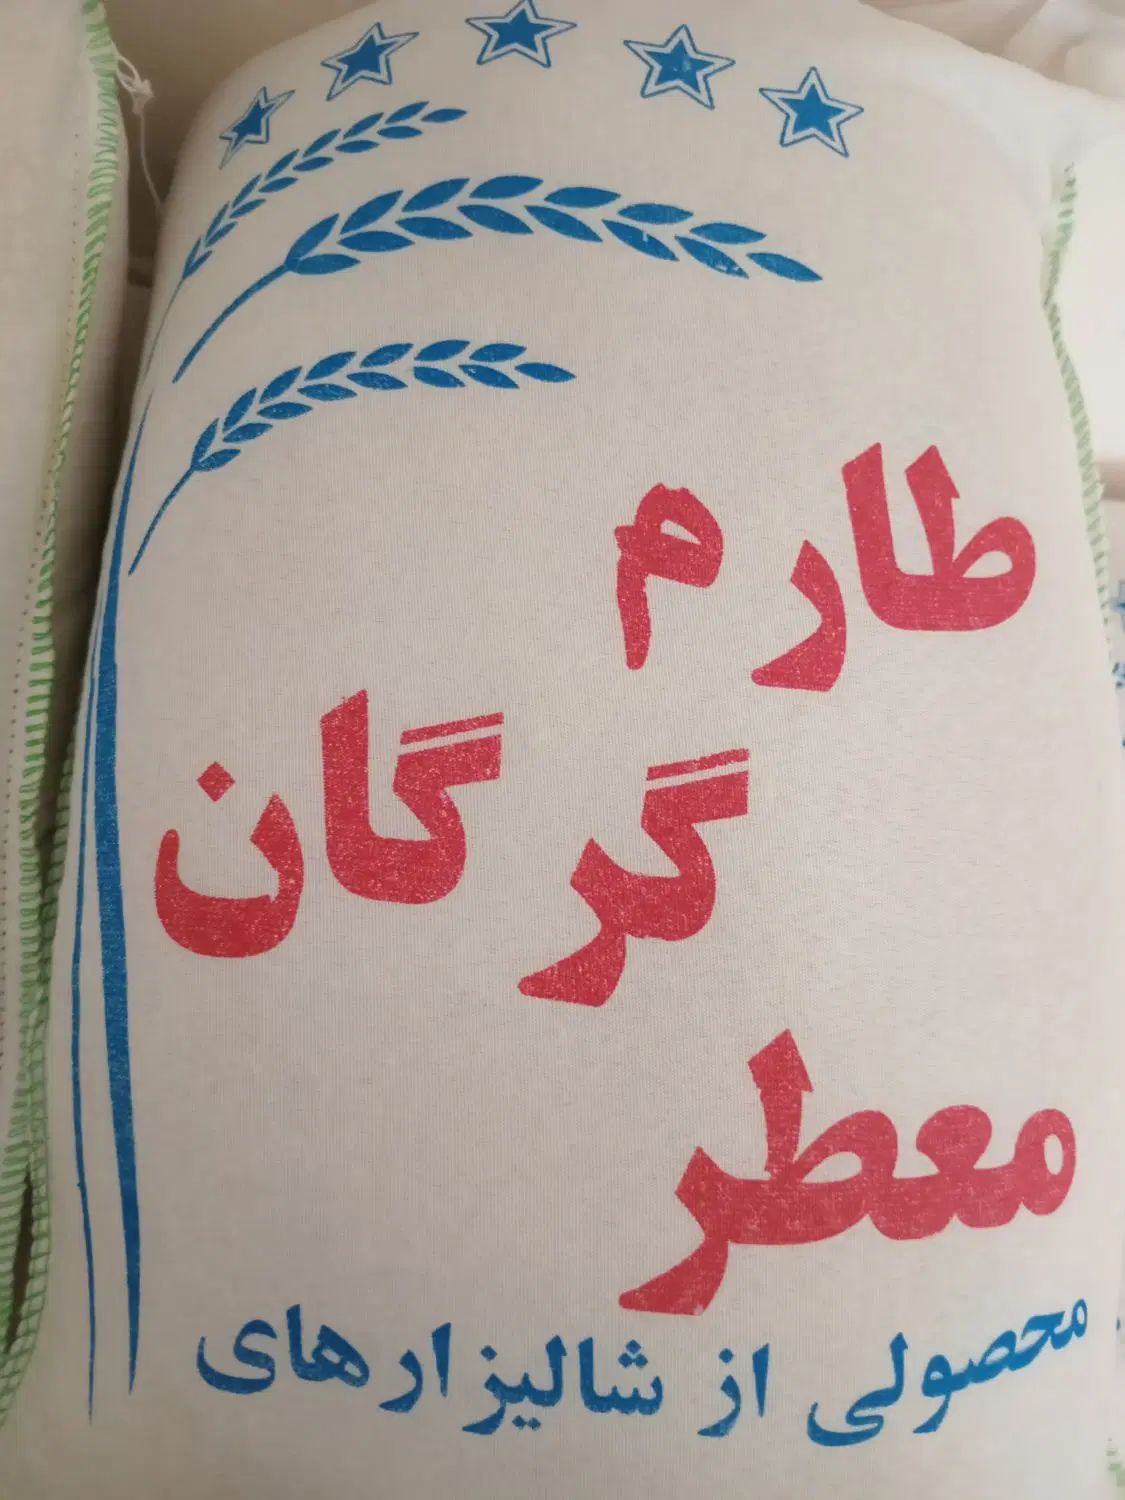 طارم
گرگان
معطر
محصولی از شالیزارهای